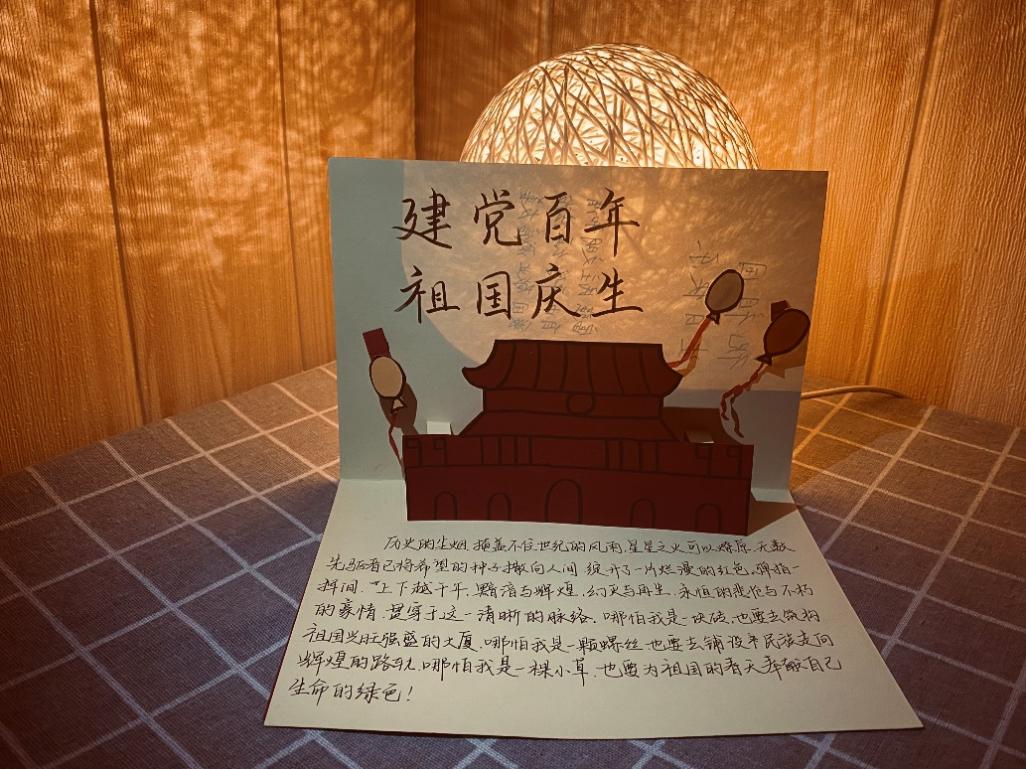 建党百年
祖国庆生
历史的尘烟,掩盖不住世纪的风雨,星星之火可以燎原,无数
先驱者已将希望的种子撒向人间,绽开了一片烂漫的红色,弹指一
挥间,上下越千年,黯淡与辉煌,幻灭与再生,永恒的悲怆与不朽
的豪情,贯穿于这一清晰的脉络,哪怕我是一块砖,也要去筑构
祖国兴旺强盛的大厦,哪怕我是一颗螺丝,也要去铺设平民族走向
辉煌的路轨,哪怕我是一棵小草,也要为祖国的春天奉献自己
生命的绿色!